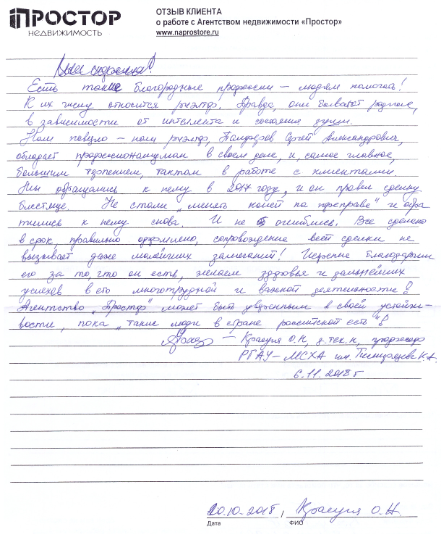 ПРОСТОР
НЕДВИЖИМОСТЬ
ОТЗЫВ КЛИЕНТА
о работе с Агентством недвижимости «Простор»
www.naprostore.ru
Есть такие благородные профессии – людям помогать!
К их числу относится риэлтор. Правда, они бывают разные,
в зависимости от интеллекта и состояния души.
Нам повезло – наш риэлтор, Сергей Александрович,
обладает профессионализмом в своем деле, и самое главное,
большим терпением, тактом в работе с клиентами.
Мы обращались к нему в 2017 году, и он провел сделку
блестяще. Не стали „менять коней на переправе" и обра
тились к нему снова. И не ошиблись. Все сделано
в срок, правильно оформлено, сопровождение всей сделки не
вызывает даже малейших замечаний! Искренне благодарим
его за то, что он есть, желаем здоровья и дальнейших
успехов в его многотрудной и важной деятельности!
Агентство „Простор" может быть уверенным в своей устойчи-
вости, пока „такие люди в стране российской есть"!
О.Н., д.тех.н., профессор
РГАУ-МСХА им. Тимирязева К.А.
6.11.2018 г
20.10-2018, О.Н.
Дата ФИО